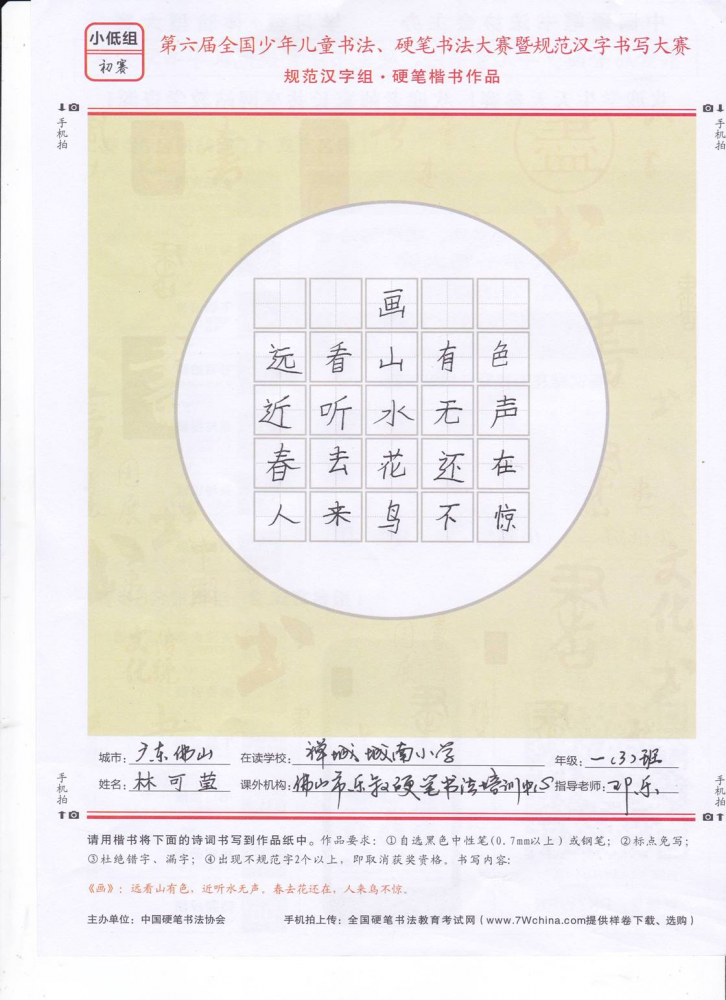 小低组
初赛
第六届全国少年儿童书法、硬笔书法大赛暨规范汉字书写大赛
规范汉字组·硬笔楷书作品
手机拍
手机拍
画
远看山有色
近听水无声
春去花还在
人来鸟不惊
城市：广东佛山 在读学校：禅城城南小学 年级：一（3）班
姓名：林可莹 课外机构：佛山市乐毅硬笔书法培训中心 指导老师：邓乐
手机拍
手机拍
请用楷书将下面的诗词书写到作品纸中。作品要求：①自选黑色中性笔(0.7mm以上）或钢笔；②标点免写；
③杜绝错字、漏字；④出现不规范字2个以上，即取消获奖资格。书写内容：
《画》：远看山有色，近听水无声。春去花还在，人来鸟不惊。
主办单位：中国硬笔书法协会 手机拍上传：全国硬笔书法教育考试网（www.7Wchina.com提供样卷下载、选购）